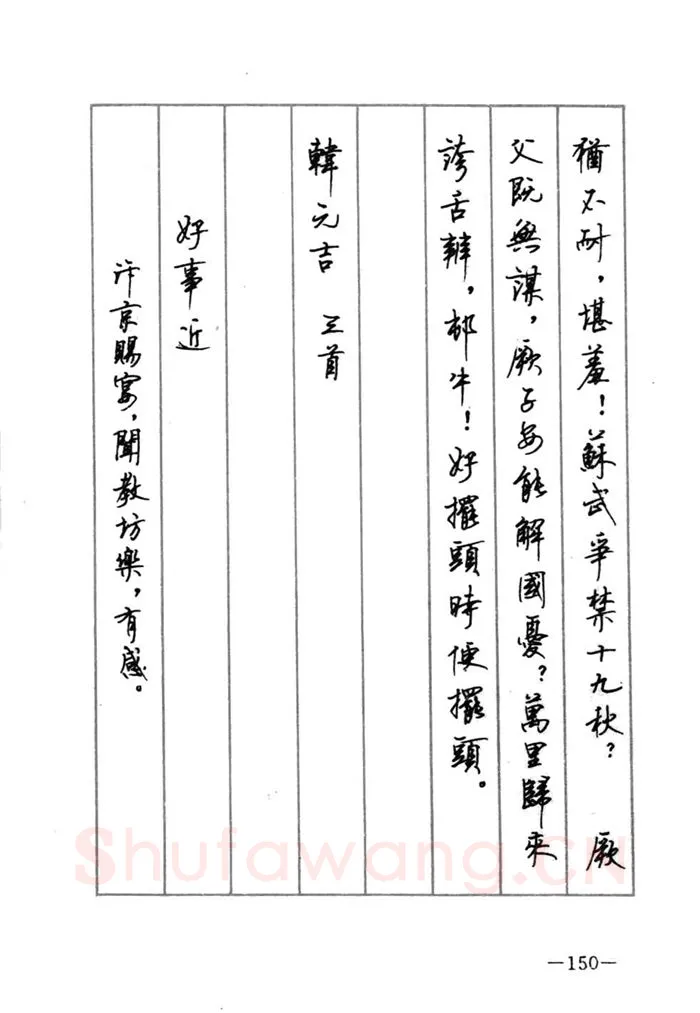 猶不耐，堪羞！蘇武爭禁十九秋？　厥
父既無謀，厥子安能解國憂？萬里歸來
誇舌辯，村牛！好擺頭時便擺頭。
韓元吉　三首
好事近
汴京賜宴，聞教坊樂，有感。
Shufawang.CN
—150—